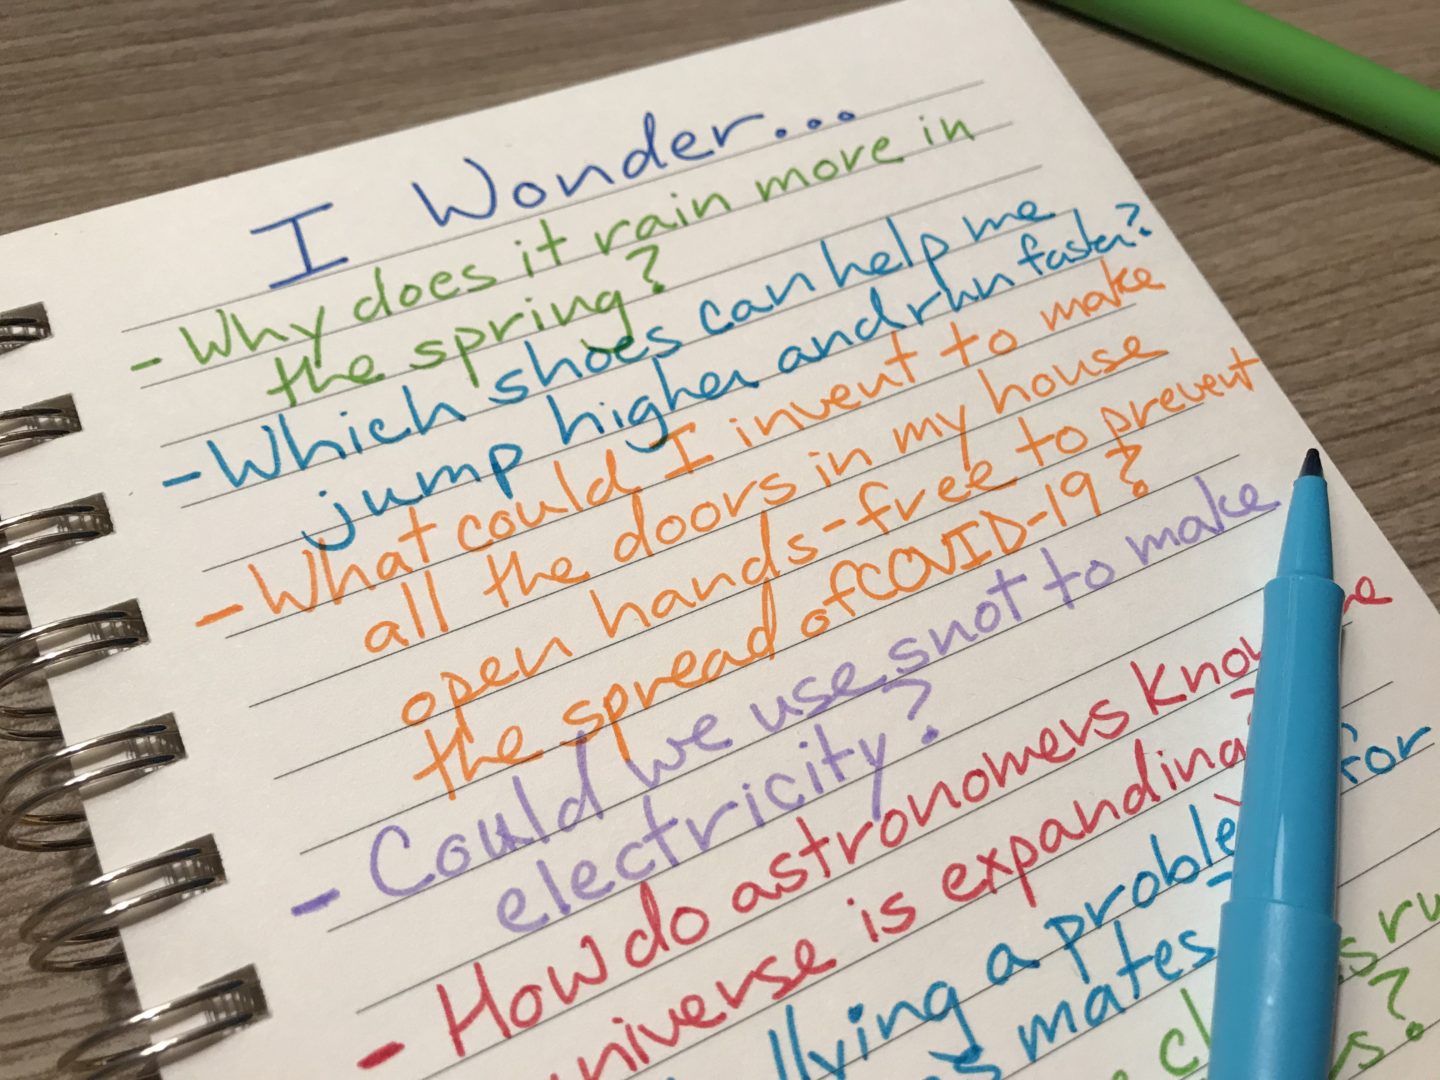 I Wonder...
- Why does it rain more in
the spring?
- Which shoes can help me
jump higher and run faster?
- What could I invent to make
all the doors in my house
open hands-free to prevent
the spread of COVID-19?
- Could we use snot to make
electricity?
- How do astronomers know
universe is expanding
a for
mates